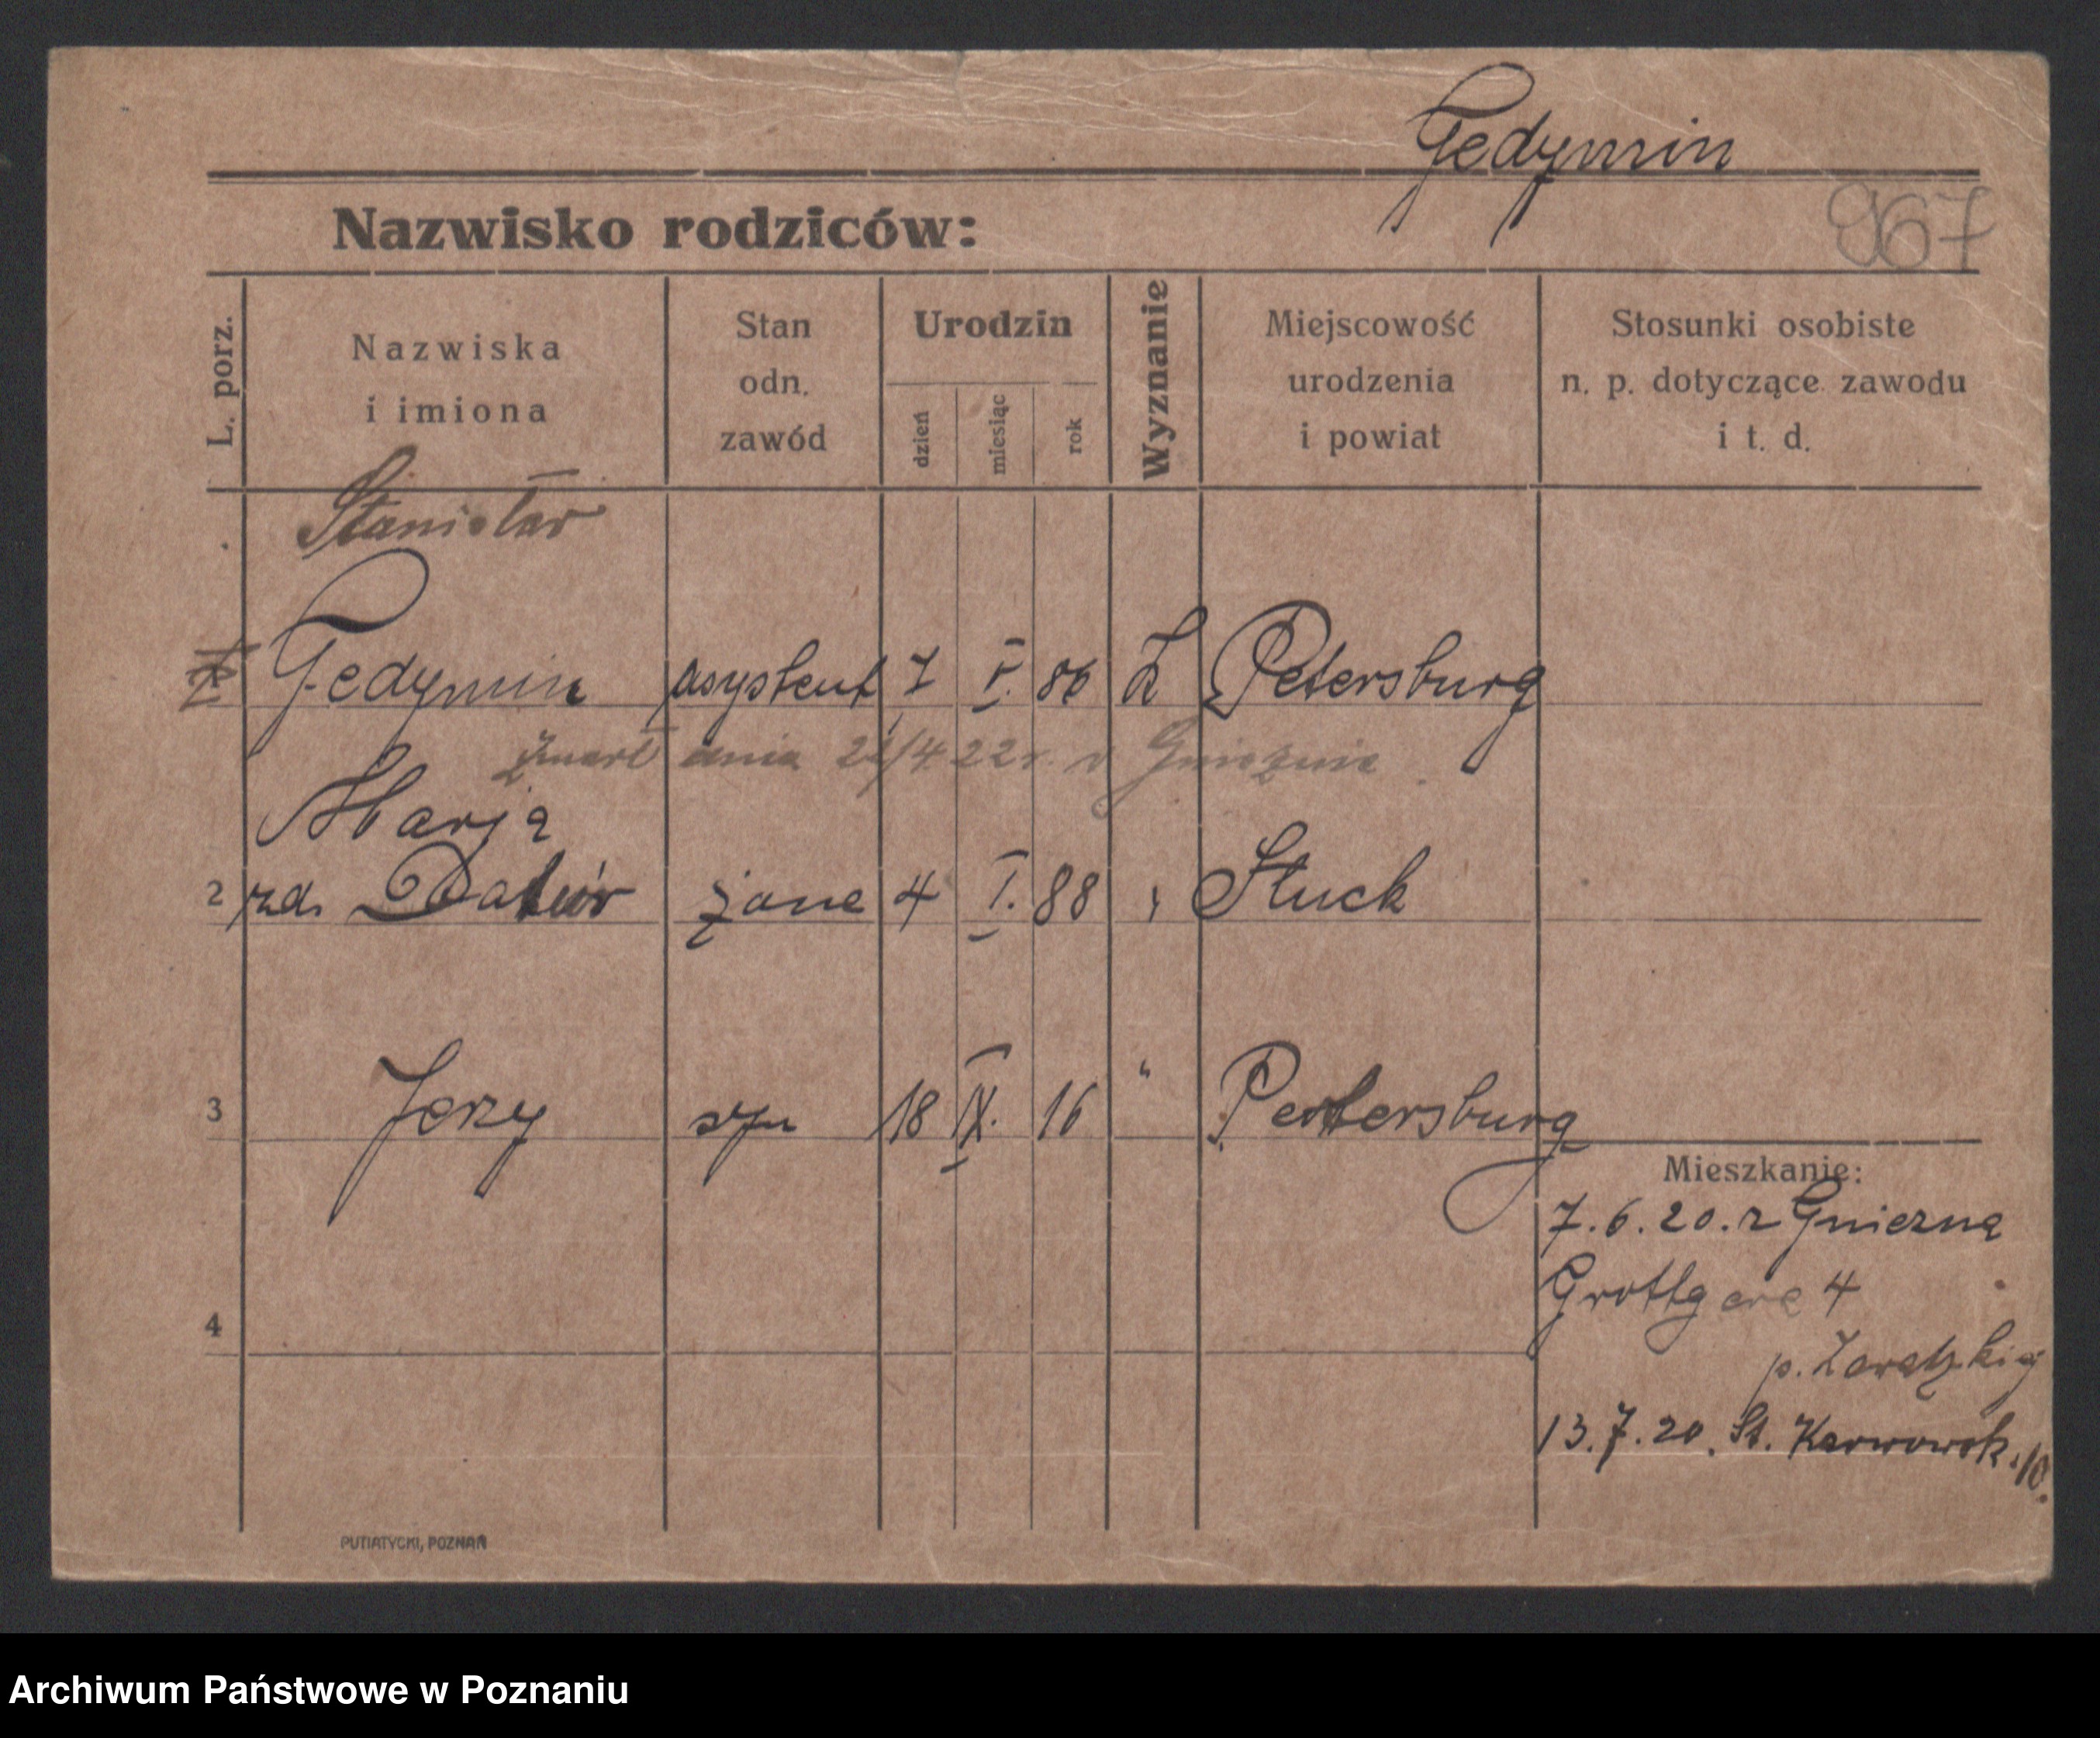 Gedymin
967
Nazwisko rodziców:
L. porz.
Nazwiska
i imiona
Stan
odn.
zawód
Urodzin
dzień
miesiąc
rok
Wyznanie
Miejscowość
urodzenia
i powiat
Stosunki osobiste
n. p. dotyczące zawodu
i t. d.
Stanisław
Gedymin asystent 7 V. 86 Petersburg
zmarł dnia /4 22 r. w Gnieźnie
Marja
2 żona 4 I. 88 Słuck
3 Jerzy syn 18 IX. 16 " Petersburg
Mieszkanie:
7.6.20. z Gniezna
Grottgera 4
4
p.
13.7.20. St. Karwowsk. 10.
PUTIATYCKI, POZNAŃ
Archiwum Państwowe w Poznaniu